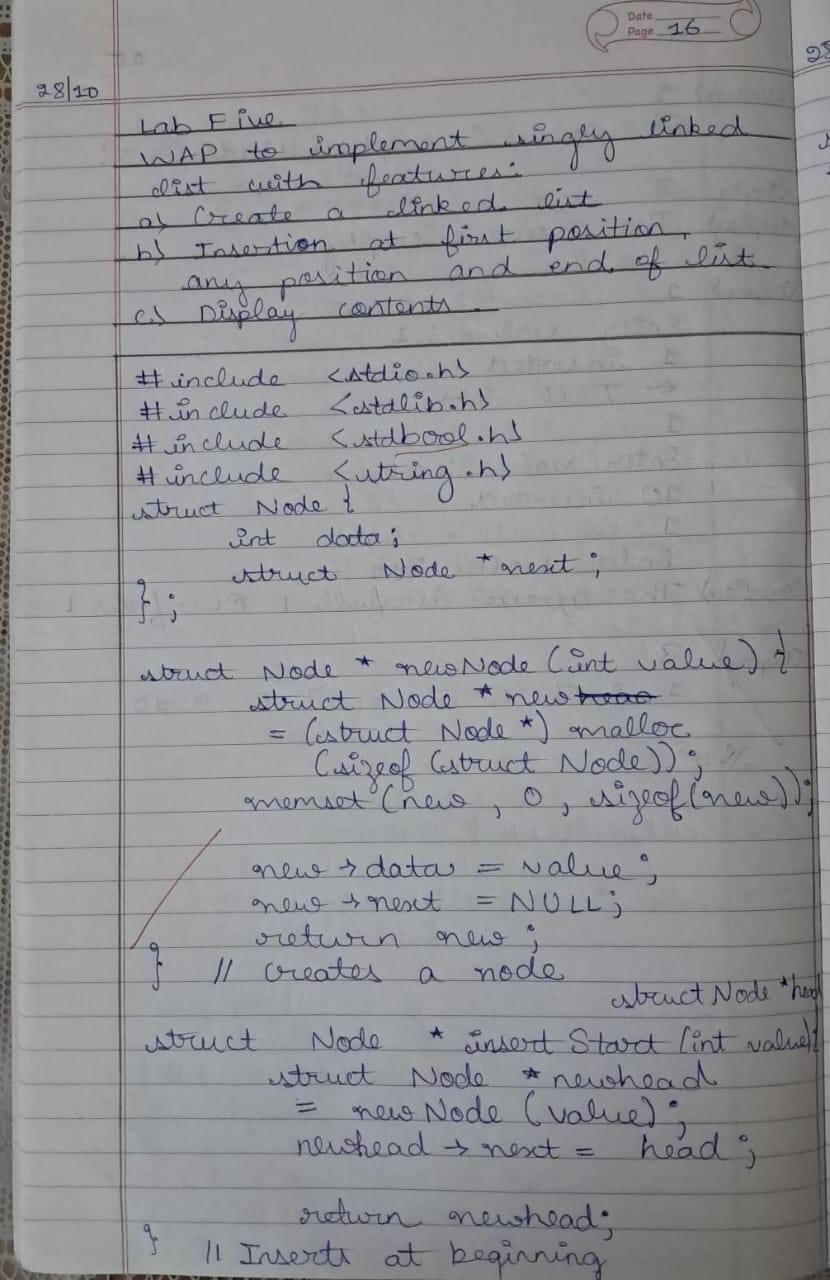 Date
Page 16
28/10
Lab Five
WAP to implement singly linked
list with features:
a) Create a linked list
b) Insertion at first position,
any position and end of list
c) Display contents.
#include <stdio.h>
#include <stdlib.h>
#include <stdbool.h>
#include <string.h>
struct Node {
int data;
struct Node *next;
};
struct Node * newNode (int value) {
struct Node * new
= (struct Node *) malloc
(sizeof (struct Node));
memset (new, 0, sizeof(new));
new → data = value;
new → next = NULL;
return new;
} // creates a node
struct Node *head
struct Node * insert Start (int value) {
struct Node * newhead
= newNode (value);
newhead → next = head;
return newhead;
} // Inserts at beginning